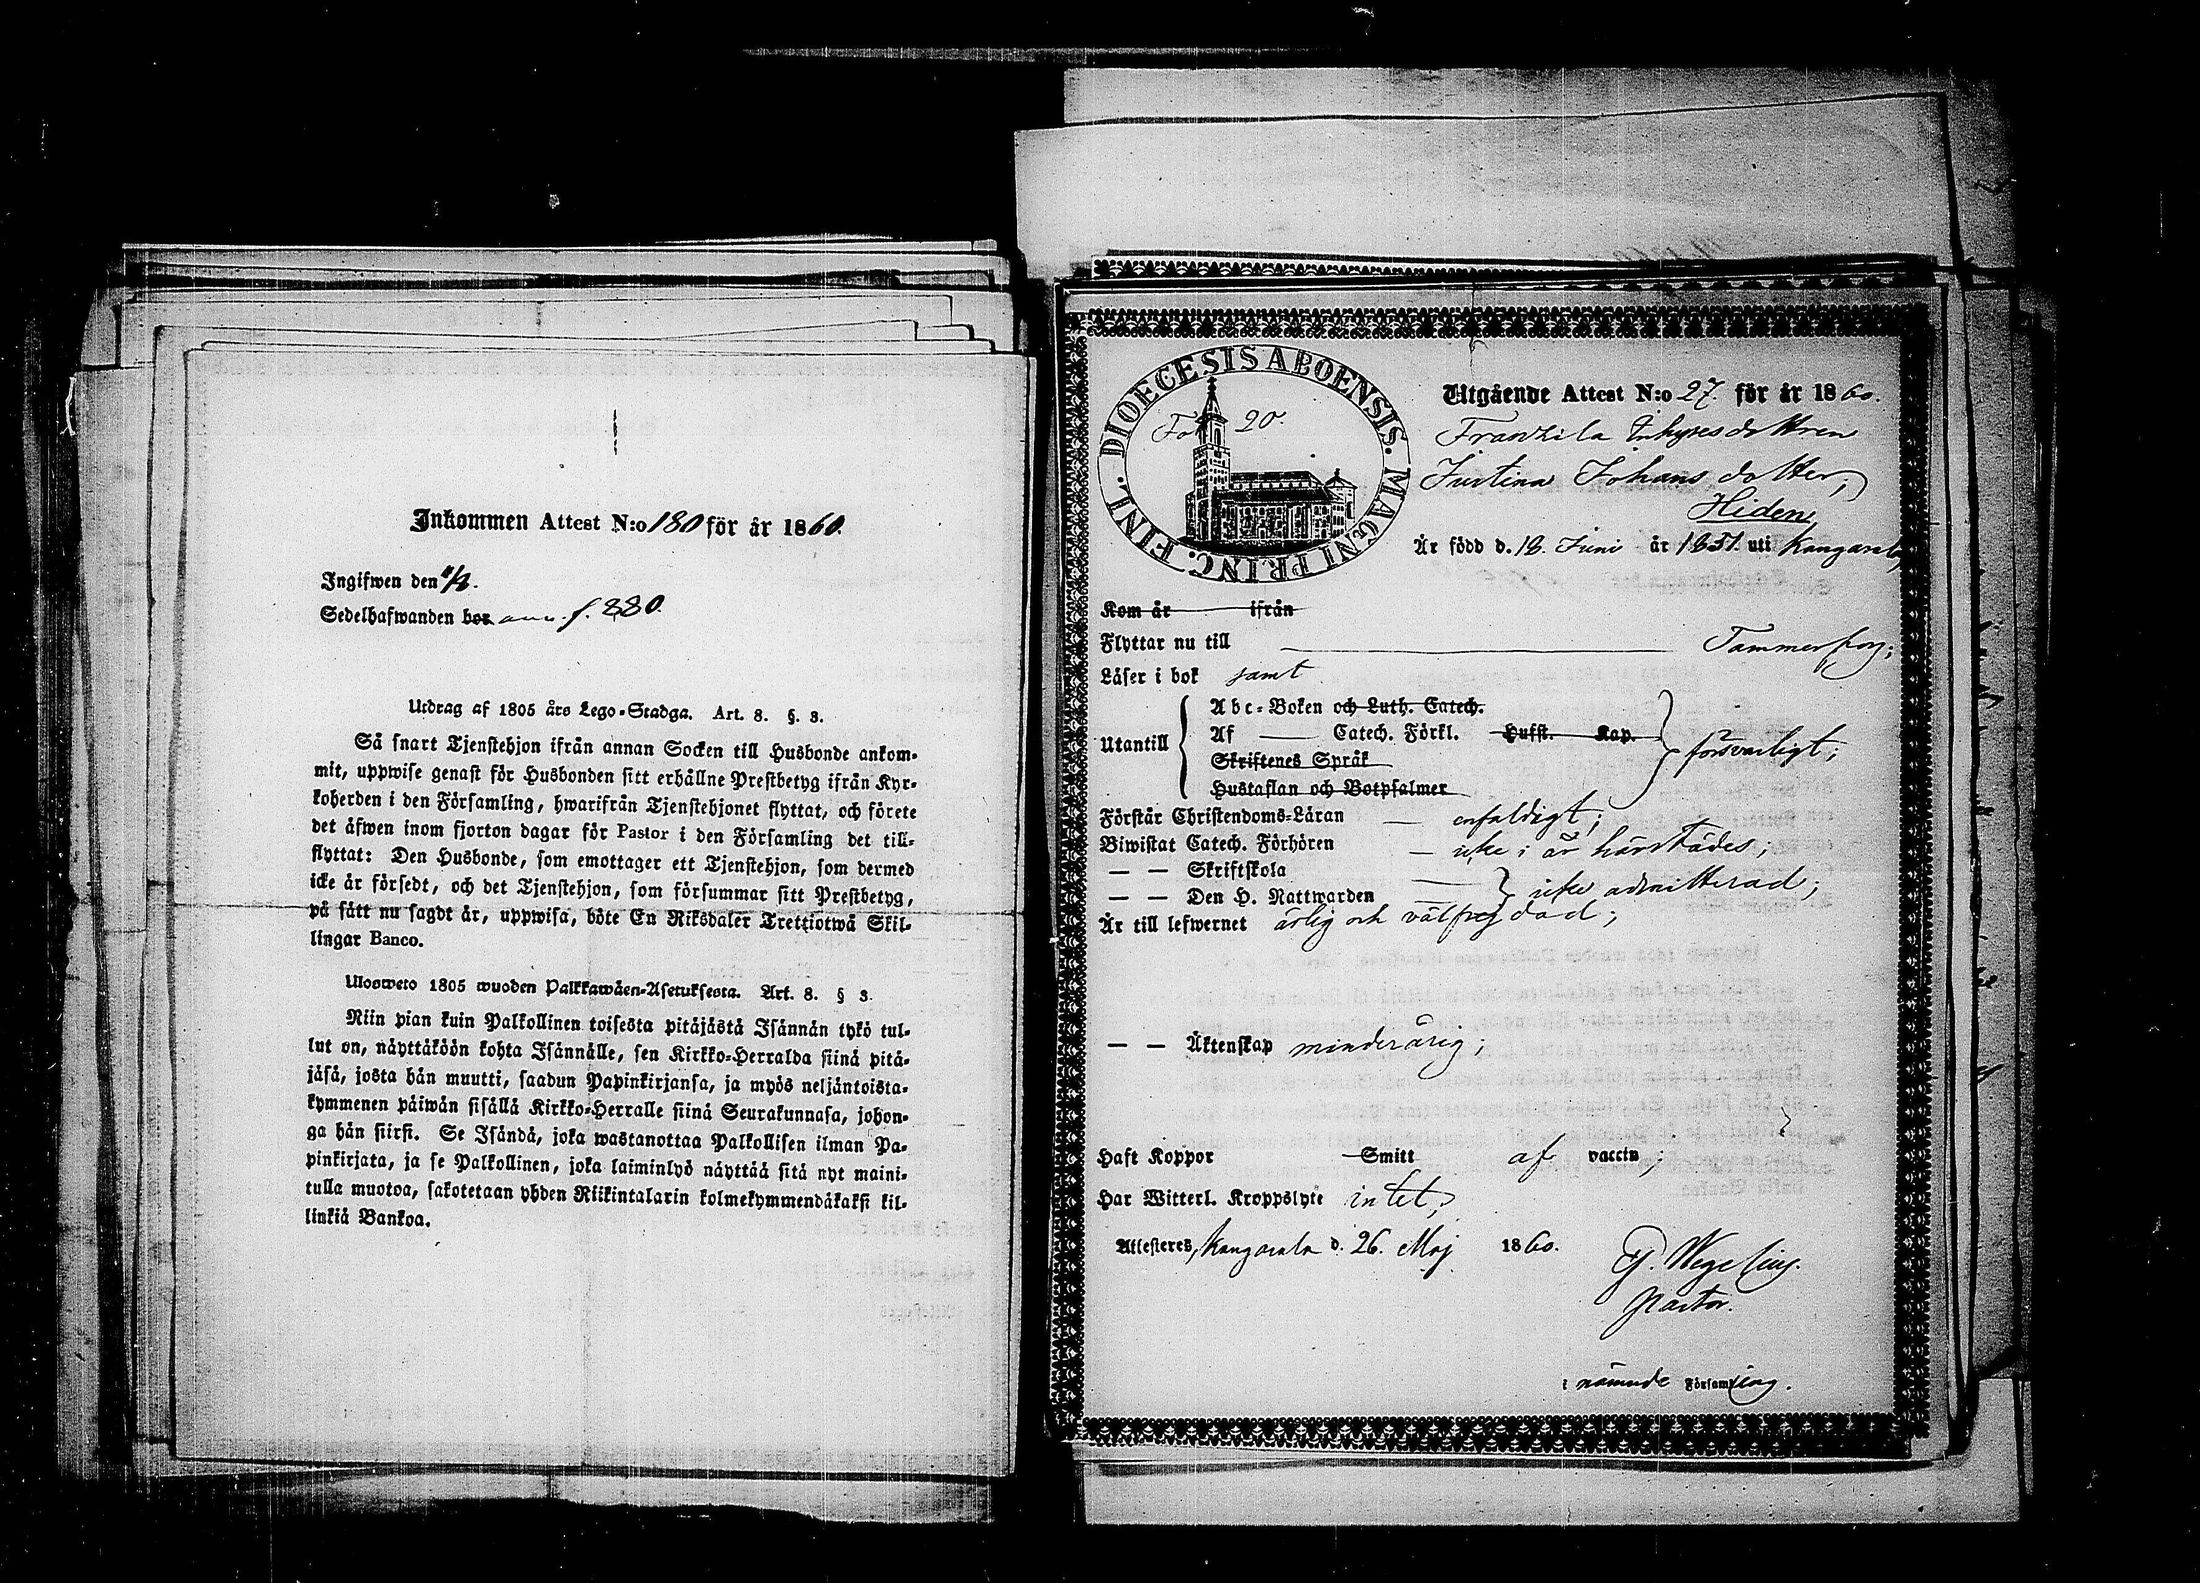 Inkommen Attest N:o 180 för år 1860.
Ingifwen den
Sedelhafwanden bor ann. f. 880.
Utdrag af 1805 års Lego-Stadga. Art. 8. §. 3.
Så snart Tjenstehjon ifrån annan Socken till Husbonde ankom-
mit, uppwise genast för Husbonden sitt erhållne Prestbetyg ifrån Kyr-
koherden i den Församling, hwarifrån Tjenstehjonet flyttat, och förete
det äfwen inom fjorton dagar för Pastor i den Församling det till-
flyttat: Den Husbonde, som emottager ett Tjenstehjon, som dermed
icke är försedt, och det Tjenstehjon, som försummar sitt Prestbetyg,
på sätt nu sagdt är, uppwisa, böte En Riksdaler Trettiotwå Skil-
lingar Banco.
Ulosweto 1805 wuoden Palkkawäen-Asetuksesta. Art. 8. § 3.
Niin pian kuin Palkollinen toisesta pitäjästä Isännän tykö tul-
lut on, näyttäköön kohta Isännälle, sen Kirkko-Herralda siinä pitä-
jäsä, josta hän muutti, saadun Papinkirjansa, ja myös neljäntoista-
kymmenen päiwän sisällä Kirkko-Herralle siinä Seurakunnasa, johon-
ga hän siirsi. Se Isändä, joka wastanottaa Palkollisen ilman Pa-
pinkirjata, ja se Palkollinen, joka laiminlyö näyttää sitä nyt maini-
tulla muotoa, sakotetaan yhden Riikintalarin kolmekymmendäkaksi kil-
linkiä Bankoa.
DIOECESIS ABOENSIS. MAGNI PRINC. FINL.
Fol 20.
Utgående Attest N:o 27. för år 1860.
Franzila Inhysesdottren
Justina Johansdotter,
Hiden,
Är född d. 18. Juni år 1851. uti Kangasala,
Kom år ifrån
Flyttar nu till Tammerfors;
Läser i bok samt
Utantill
Abc-Boken och Luth. Catech.
Af Catech. Förkl. Hufst. Kap.
Skriftenes Språk
Hustaflan och Botpsalmer
försvarligt;
Förstår Christendoms-Läran enfaldigt;
Biwistat Catech. Förhören icke i år härstädes;
— — Skriftskola
— — Den H. Nattwarden icke admitterad;
Är till lefwernet ärlig och välfrejdad;
— — Äktenskap minderårig;
Haft Koppor Smitt af vaccin;
Har Witterl. Kroppslyte intet;
Attesteres, Kangasala d. 26. Maj 1860.
G. Wegelius.
Pastor.
i nämnde Församling.